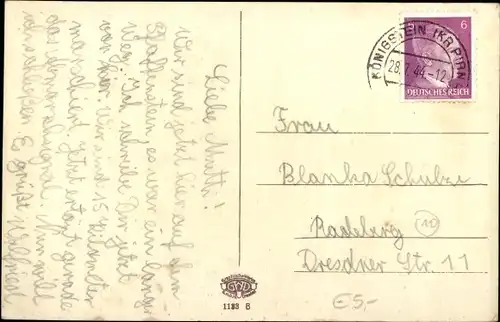 Liebe Mutti!
Wir sind jetzt hier auf dem
Pfaffenstein, es war ein langer
Weg. Ich schreibe Dir jetzt
von hier. Wir sind 15 Kilometer
marschiert, jetzt ertönt gerade
das Signal. Nun will
ich schließen. Es grüßt Wolfried
KÖNIGSTEIN (KR PIRNA)
28.7.44-12
6
DEUTSCHES REICH
Frau
Blanka Schulze
Radeberg (10)
Dresdner Str 11
1133 B
€5,-